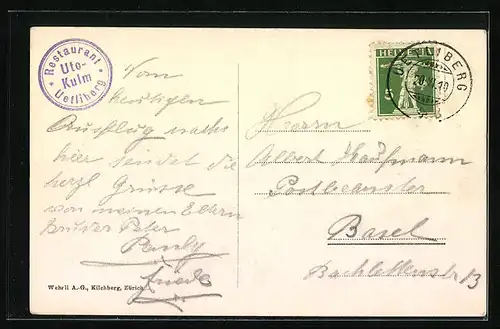 Restaurant
Uto-
Kulm
Uetliberg
HELVETIA
5
UETLIBERG
Vom
heutigen
Ausflug nach
hier sendet die
herzl Grüsse
von meinen Eltern
bruder Peter
Frieda
Herrn
Albert Kaufmann
Postbeamter
Basel
Bachlettenstr 13
Wehrli A.-G., Kilchberg, Zürich